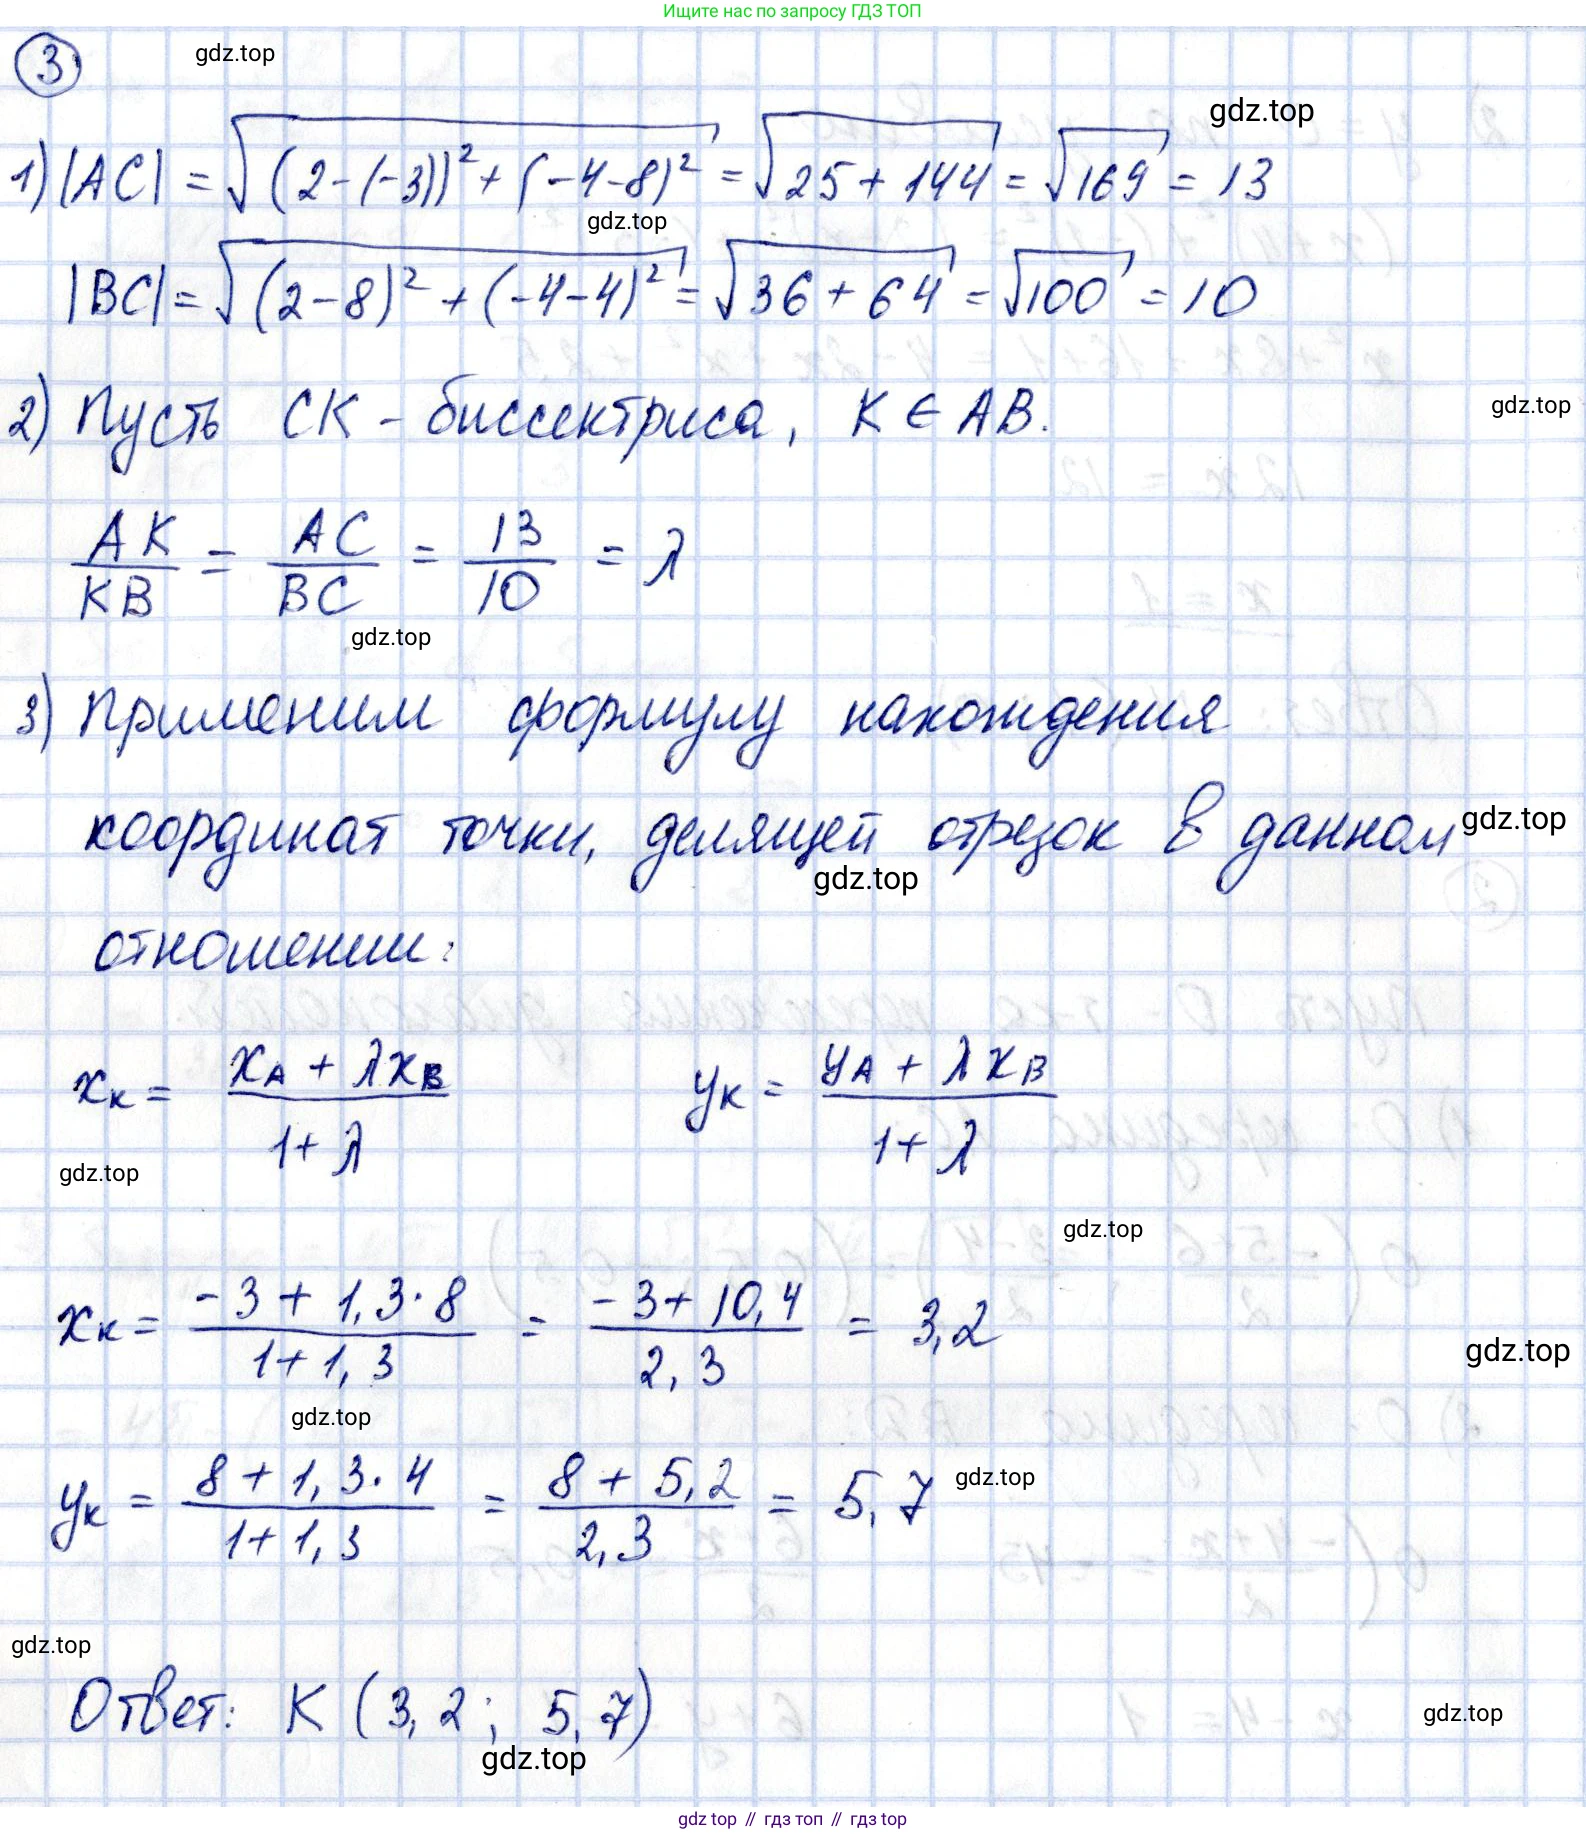 Ищите нас по запросу ГДЗ ТОП
3 gdz.top
gdz.top
1) |AC| = √((2-(-3))² + (-4-8)²) = √(25+144) = √169 = 13
gdz.top
|BC| = √((2-8)² + (-4-4)²) = √(36+64) = √100 = 10
2) Пусть CK - биссектриса, K ∈ AB.
gdz.top
AK/KB = AC/BC = 13/10 = λ
gdz.top
3) Применим формулу нахождения
координат точки, делящей отрезок в данном
gdz.top
gdz.top
отношении:
xк = (xA + λxB)/(1+λ) yк = (yA + λxB)/(1+λ)
gdz.top
gdz.top
xк = (-3 + 1,3·8)/(1+1,3) = (-3+10,4)/2,3 = 3,2
gdz.top
gdz.top
yк = (8 + 1,3·4)/(1+1,3) = (8+5,2)/2,3 = 5,7
gdz.top
gdz.top
Ответ: K (3,2; 5,7)
gdz.top
gdz.top
gdz top // гдз топ // гдз top